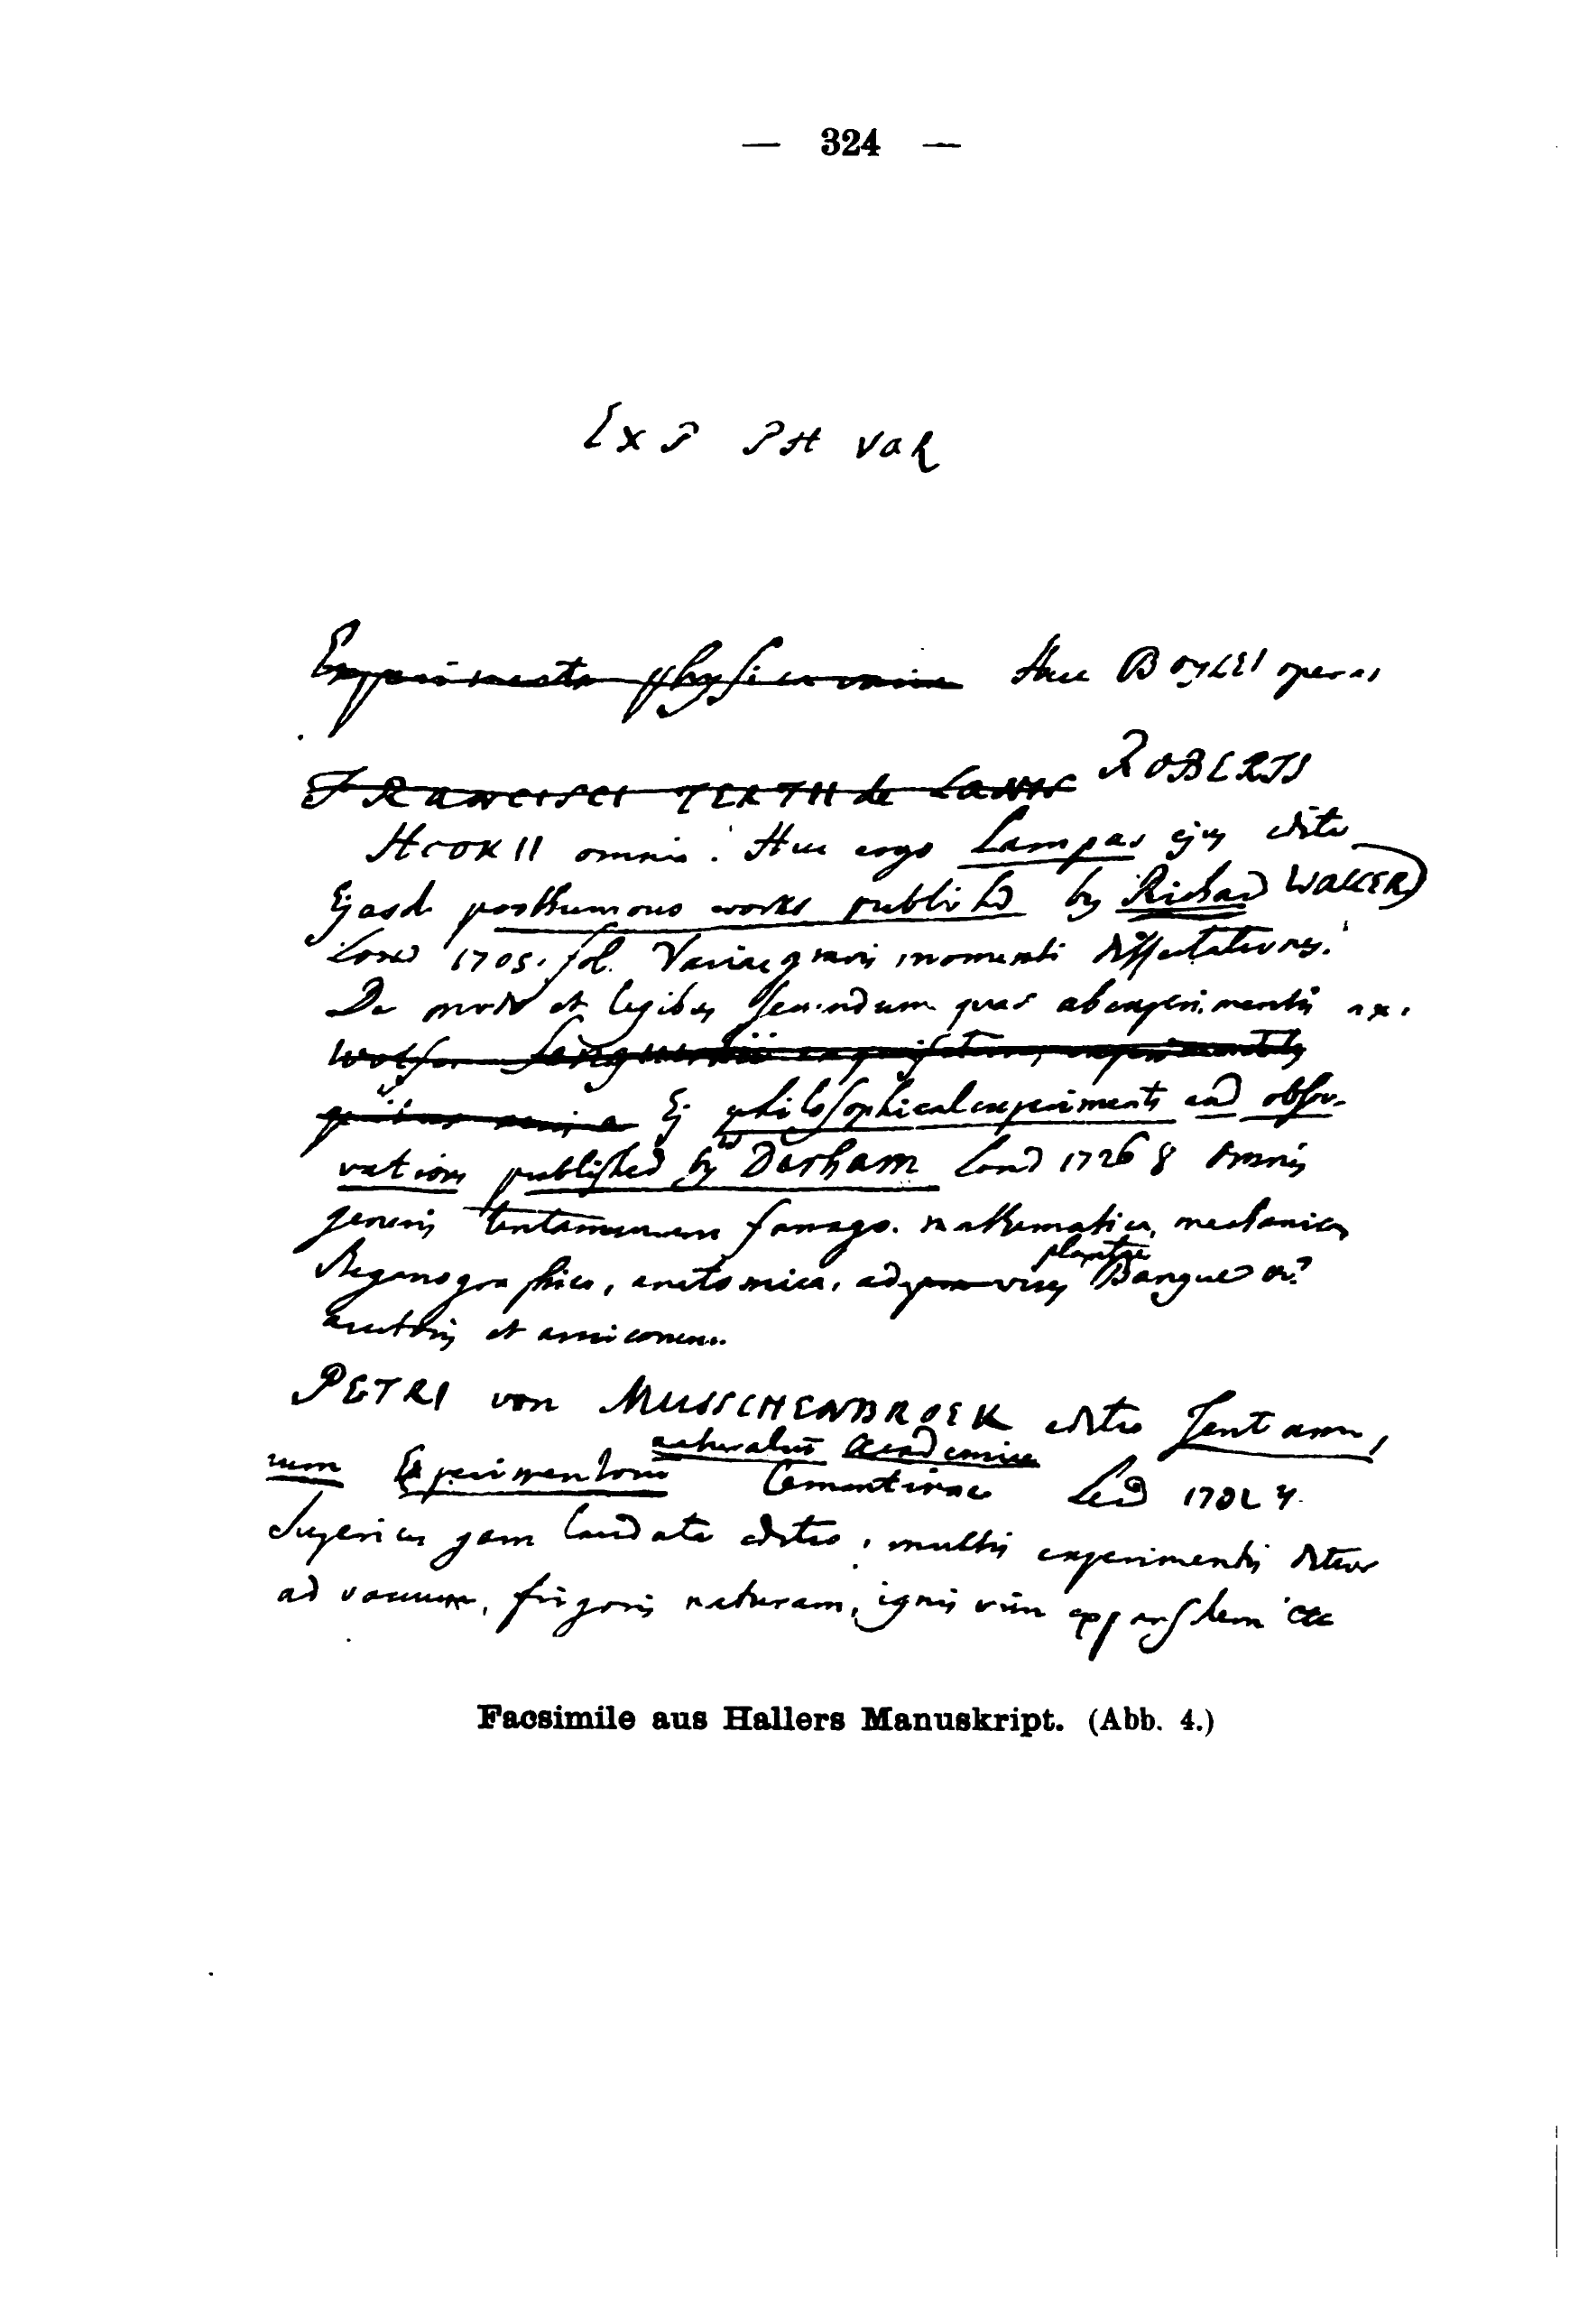 — 324 —
Exp PH VaR
Experimenta physica varia Huc BOYLEI opera
FRANCISCI TERTII de LANIS ROBERTI
HOOKII omnia. Huc ergo Lampas ejus edita
Ejasd posthumous works published by Richard WALLER
Lond 1705. fol. Variae gravis momenti
De motu et legibus secundum quas ab experimentis
Wolfer
Ej philosophical experiments and obser-
vations published by W Derham Lond 1726 8 Omnis
generis tentaminum farrago. mathematica, mechanica
steganographica, anatomica, ad vires plantae Bangue
et amicorum.
PETRI von MUSSCHENBROEK editio Tentami,
num Experimentorum naturalium Academiae Cimentinae Leid 1731 4.
Superius jam laudata editio, multis experimentis
ad vacuum, frigoris naturam, ignis vim
Facsimile aus Hallers Manuskript. (Abb. 4.)